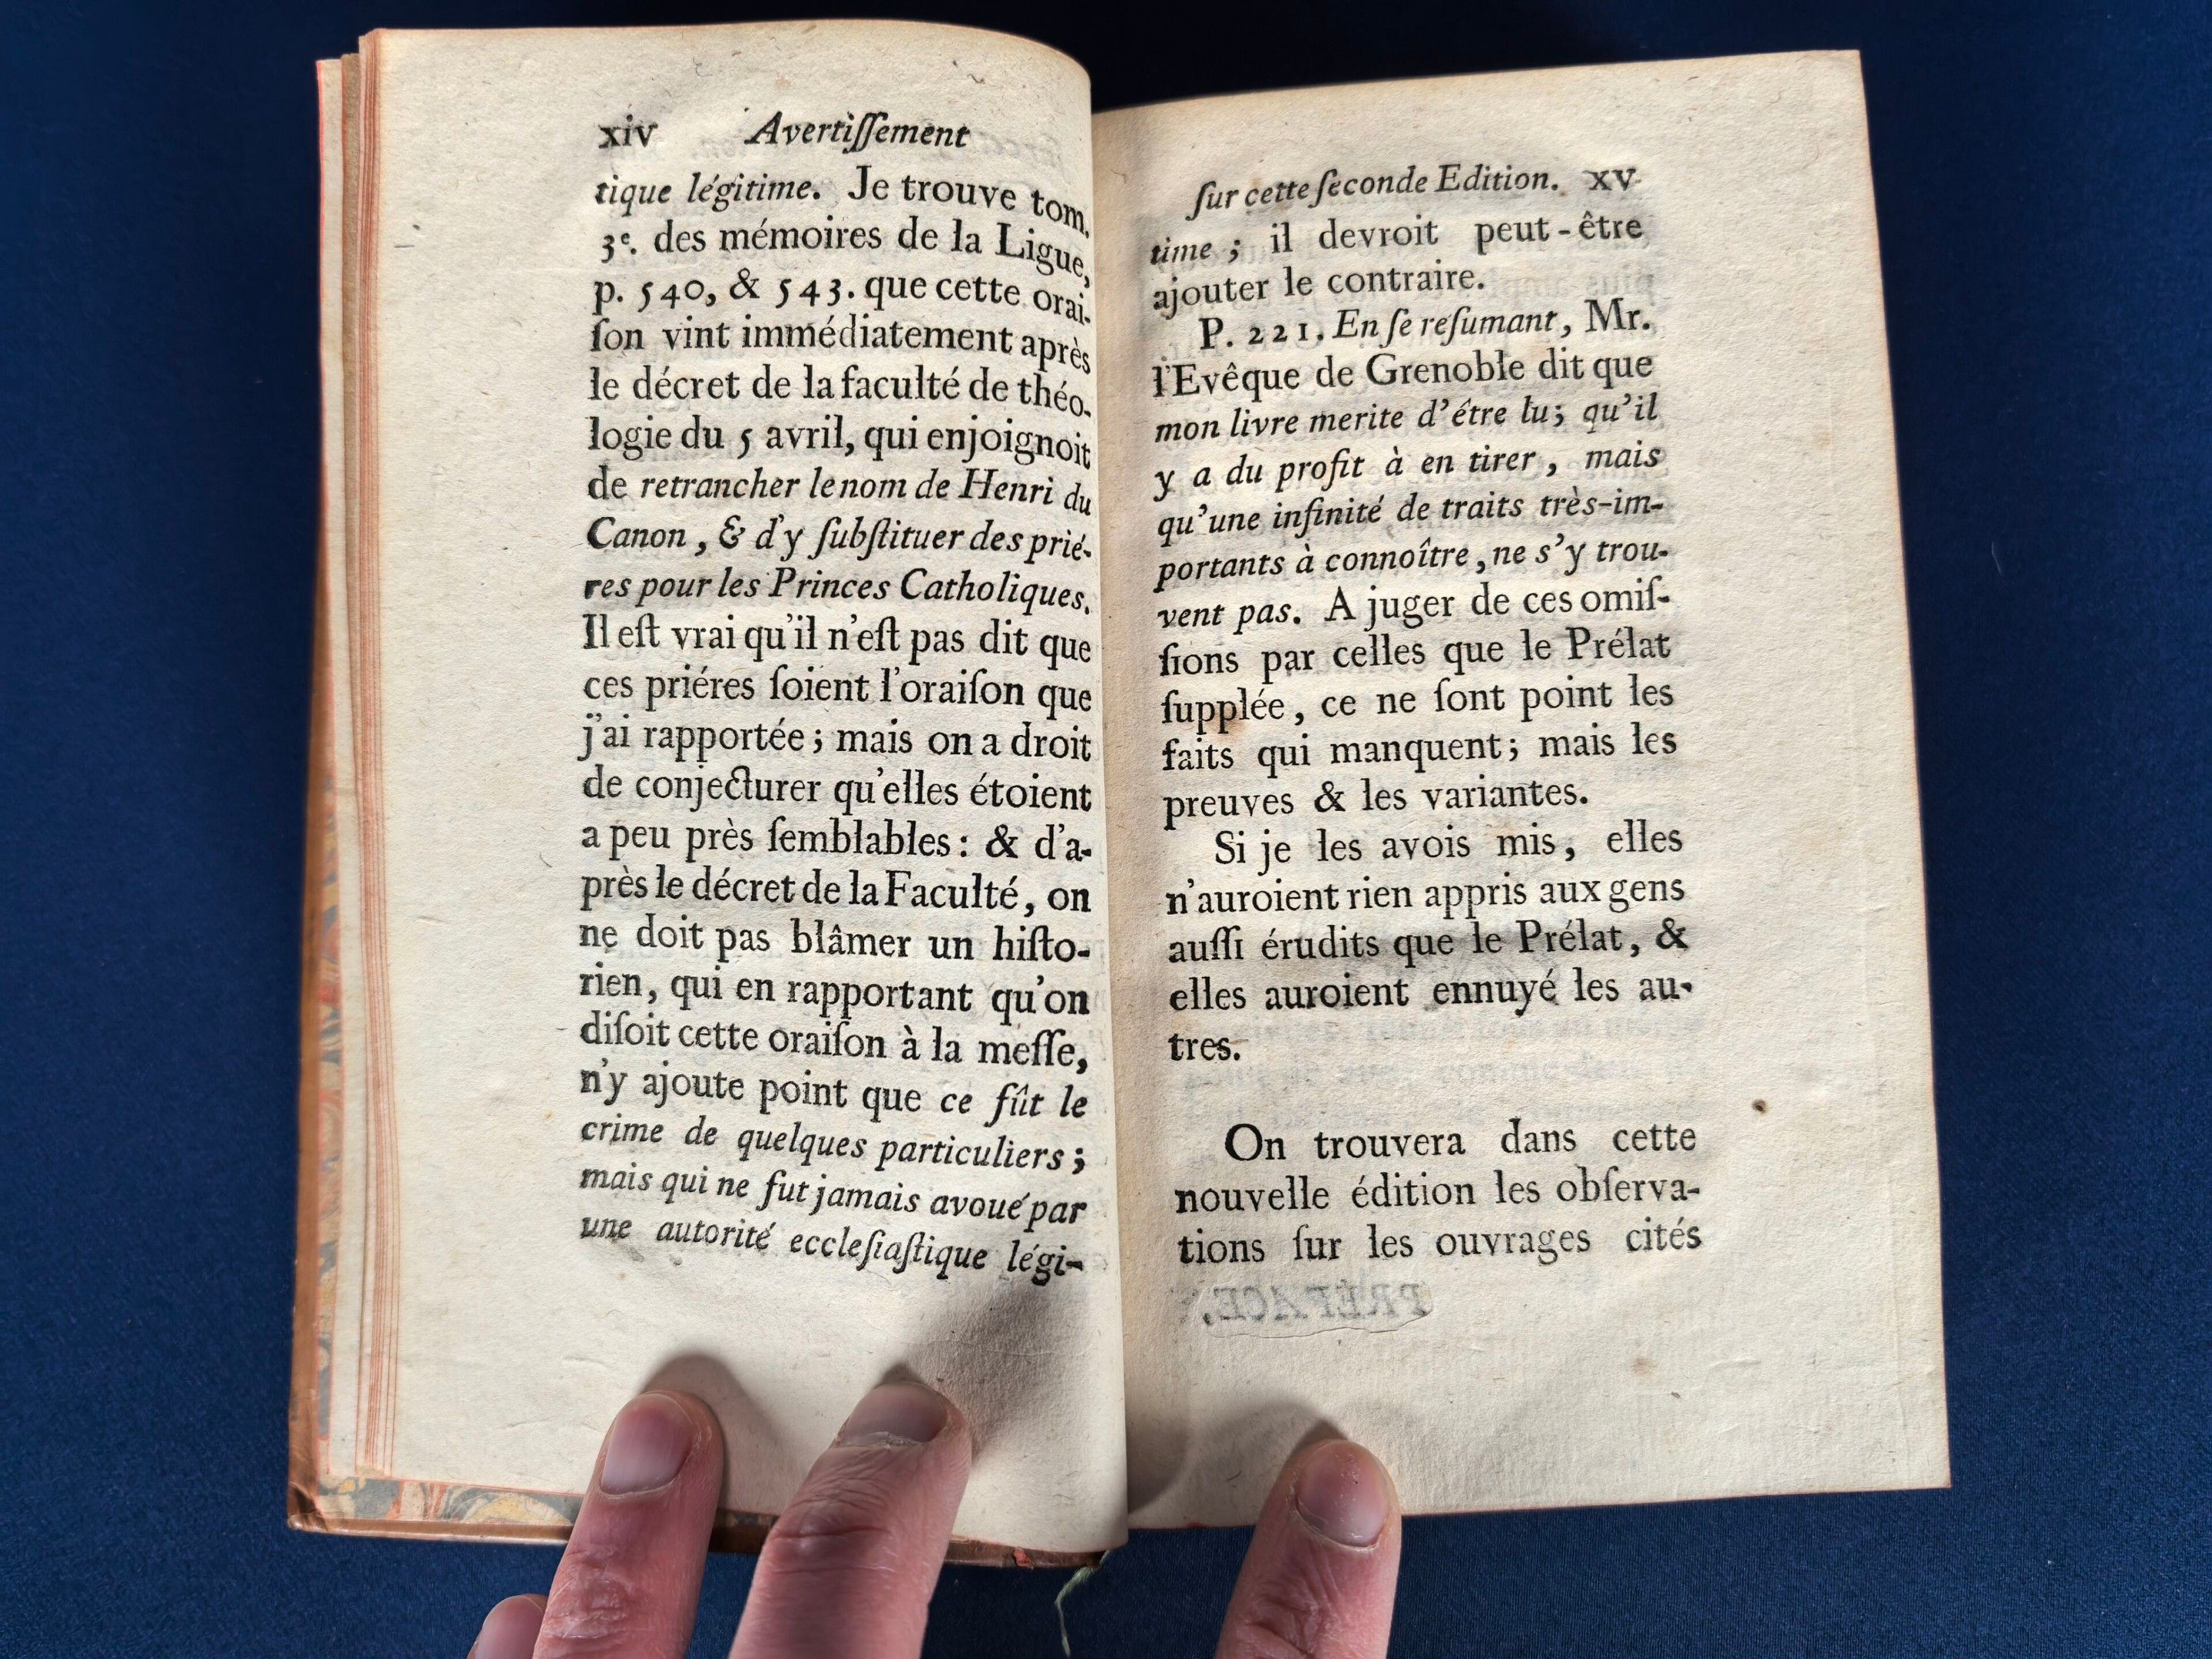 xiv Avertiſſement
tique légitime. Je trouve tom.
3e. des mémoires de la Ligue,
p. 540, & 543. que cette orai-
ſon vint immédiatement après
le décret de la faculté de théo-
logie du 5 avril, qui enjoignoit
de retrancher le nom de Henri du
Canon, & d'y ſubſtituer des prié-
res pour les Princes Catholiques.
Il eſt vrai qu'il n'eſt pas dit que
ces priéres ſoient l'oraiſon que
j'ai rapportée; mais on a droit
de conjecturer qu'elles étoient
a peu près ſemblables: & d'a-
près le décret de la Faculté, on
ne doit pas blâmer un hiſto-
rien, qui en rapportant qu'on
diſoit cette oraiſon à la meſſe,
n'y ajoute point que ce fût le
crime de quelques particuliers;
mais qui ne fut jamais avoué par
une autorité eccleſiaſtique légi-
ſur cette ſeconde Edition. xv
time; il devroit peut-être
ajouter le contraire.
P. 221. En ſe reſumant, Mr.
l'Evêque de Grenoble dit que
mon livre merite d'être lu; qu'il
y a du profit à en tirer, mais
qu'une infinité de traits très-im-
portants à connoître, ne s'y trou-
vent pas. A juger de ces omiſ-
ſions par celles que le Prélat
ſupplée, ce ne ſont point les
faits qui manquent; mais les
preuves & les variantes.
Si je les avois mis, elles
n'auroient rien appris aux gens
auſſi érudits que le Prélat, &
elles auroient ennuyé les au-
tres.
On trouvera dans cette
nouvelle édition les obſerva-
tions ſur les ouvrages cités
PREFACE,